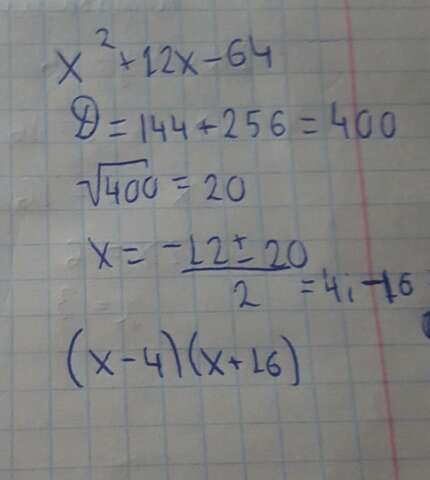 x² + 12x - 64
D = 144 + 256 = 400
√400 = 20
x = (-12 ± 20)/2 = 4; -16
(x - 4)(x + 16)